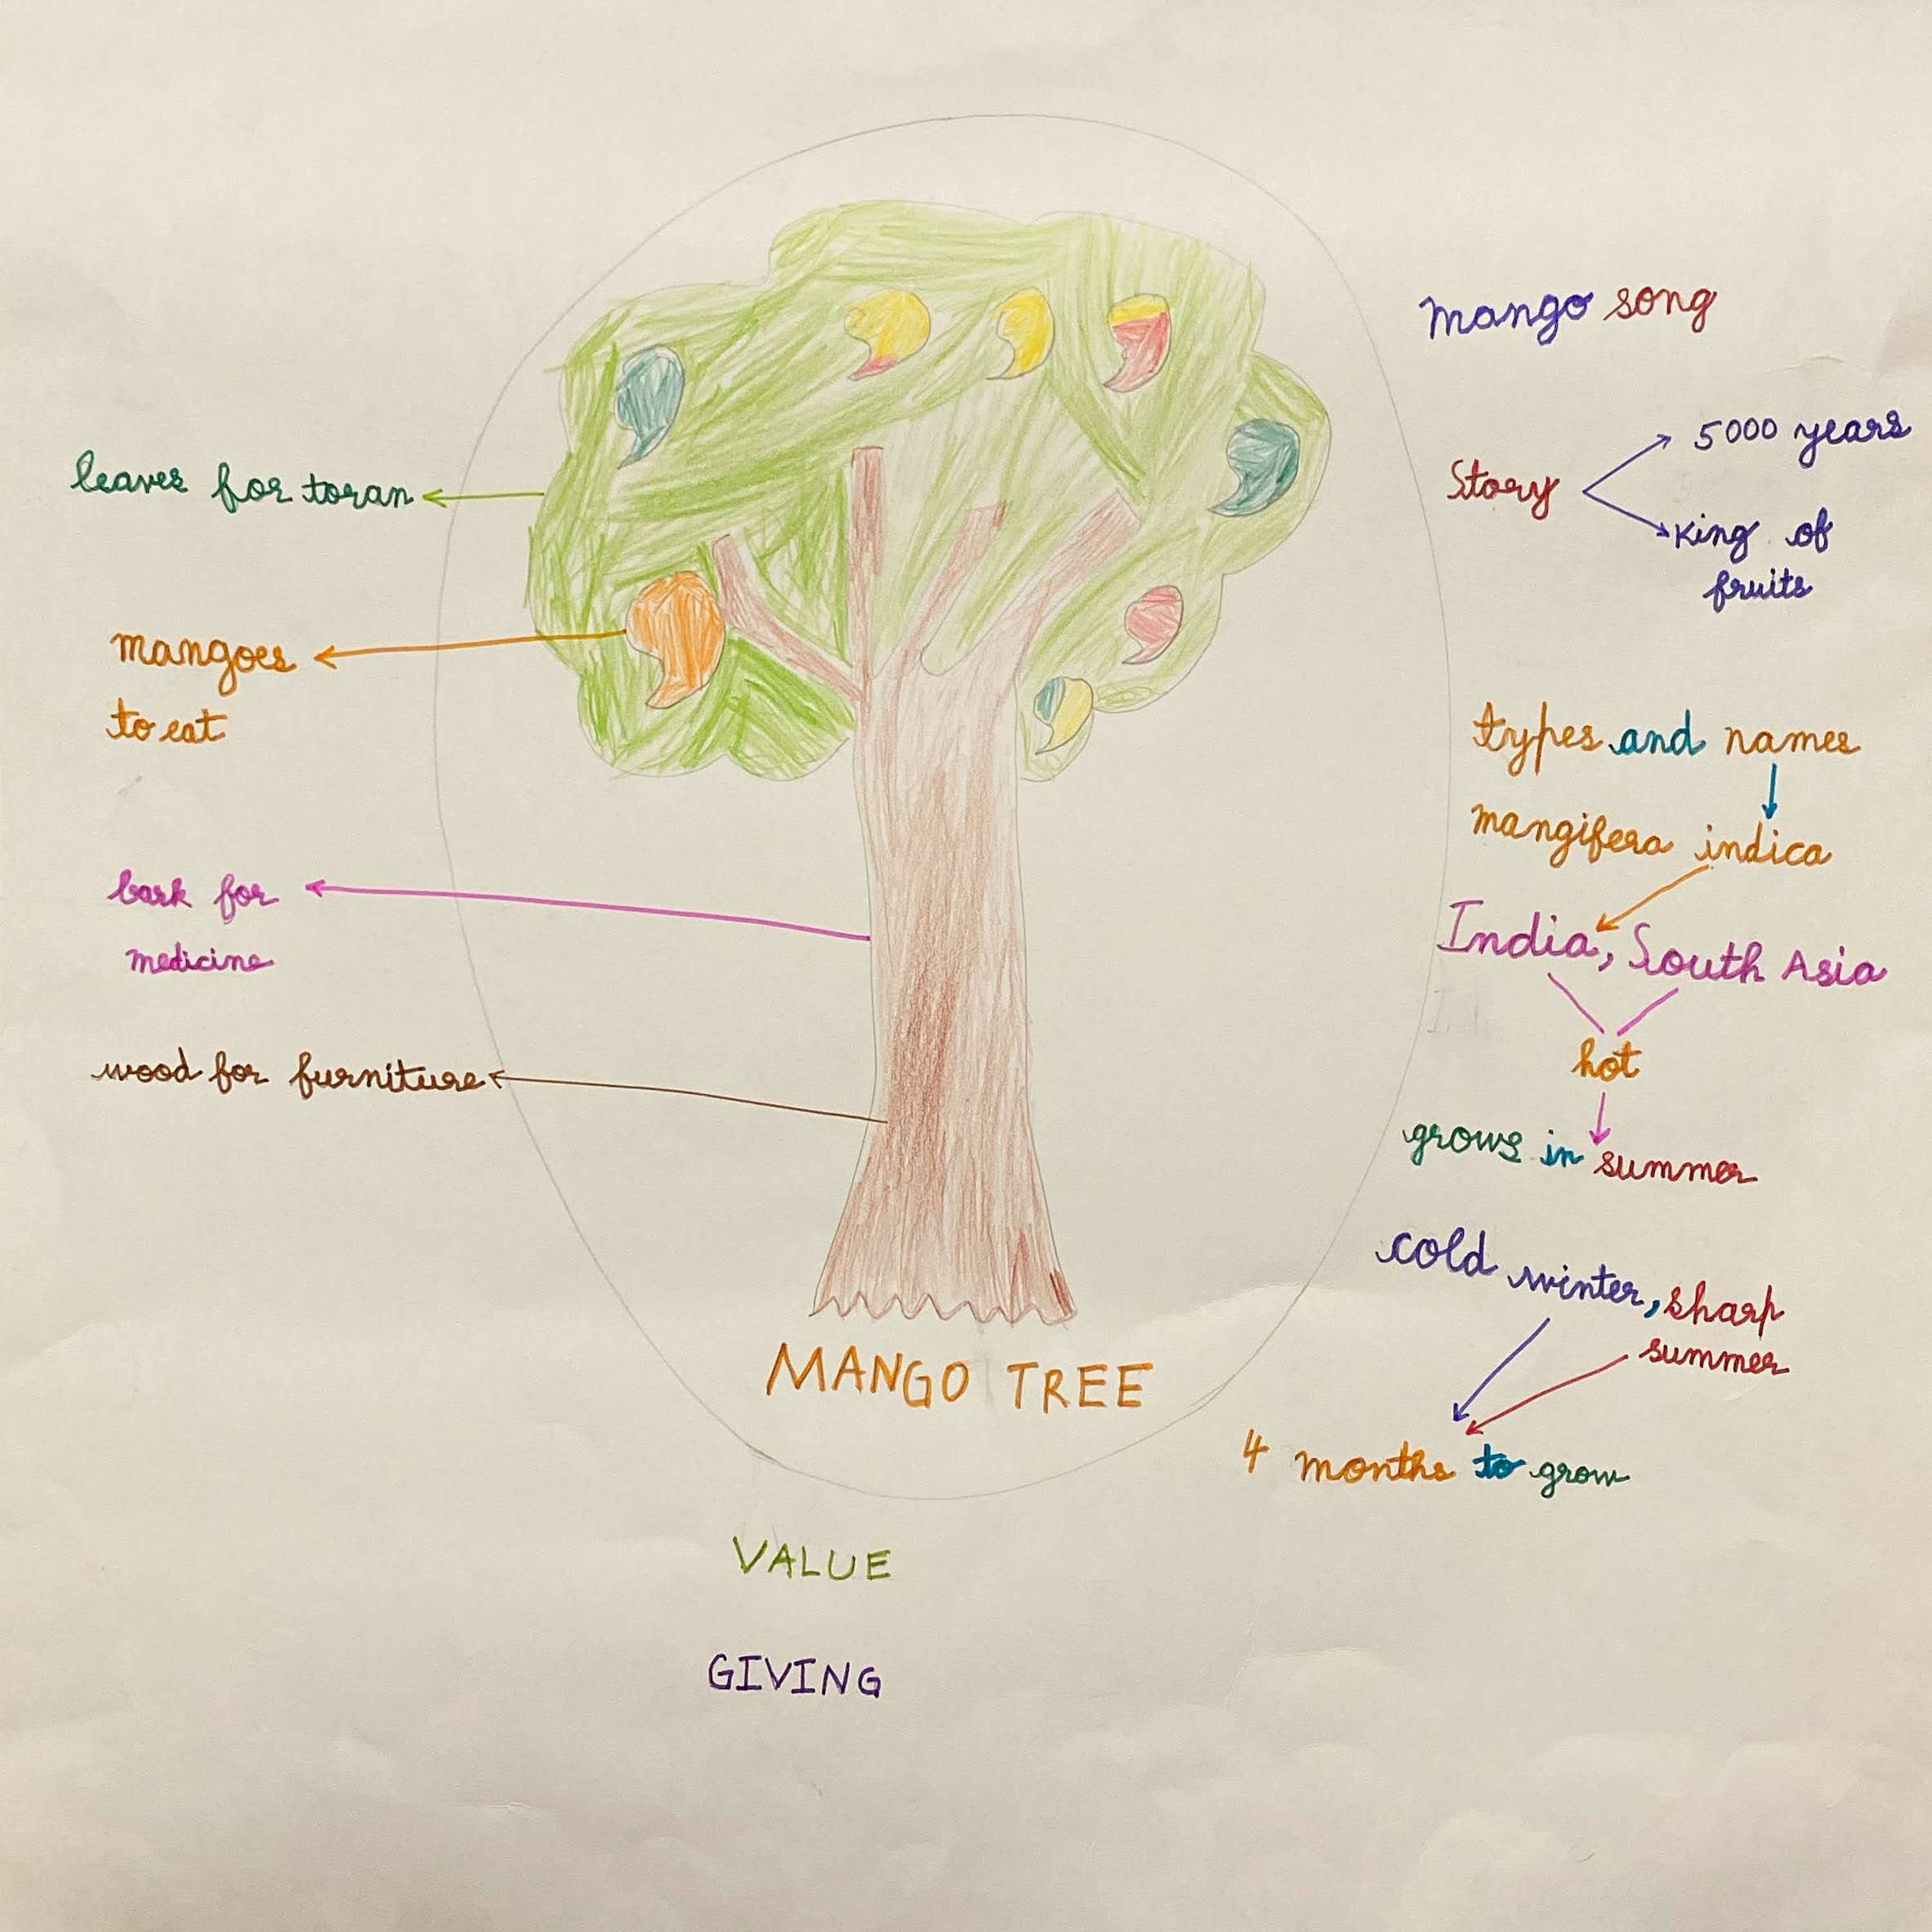 leaves for toran
mangoes
to eat
bark for
medicine
wood for furniture
mango song
Story
5000 years
King of
fruits
types and names
mangifera indica
India, South Asia
hot
grows in summer
cold winter, sharp
summer
4 months to grow
MANGO TREE
VALUE
GIVING